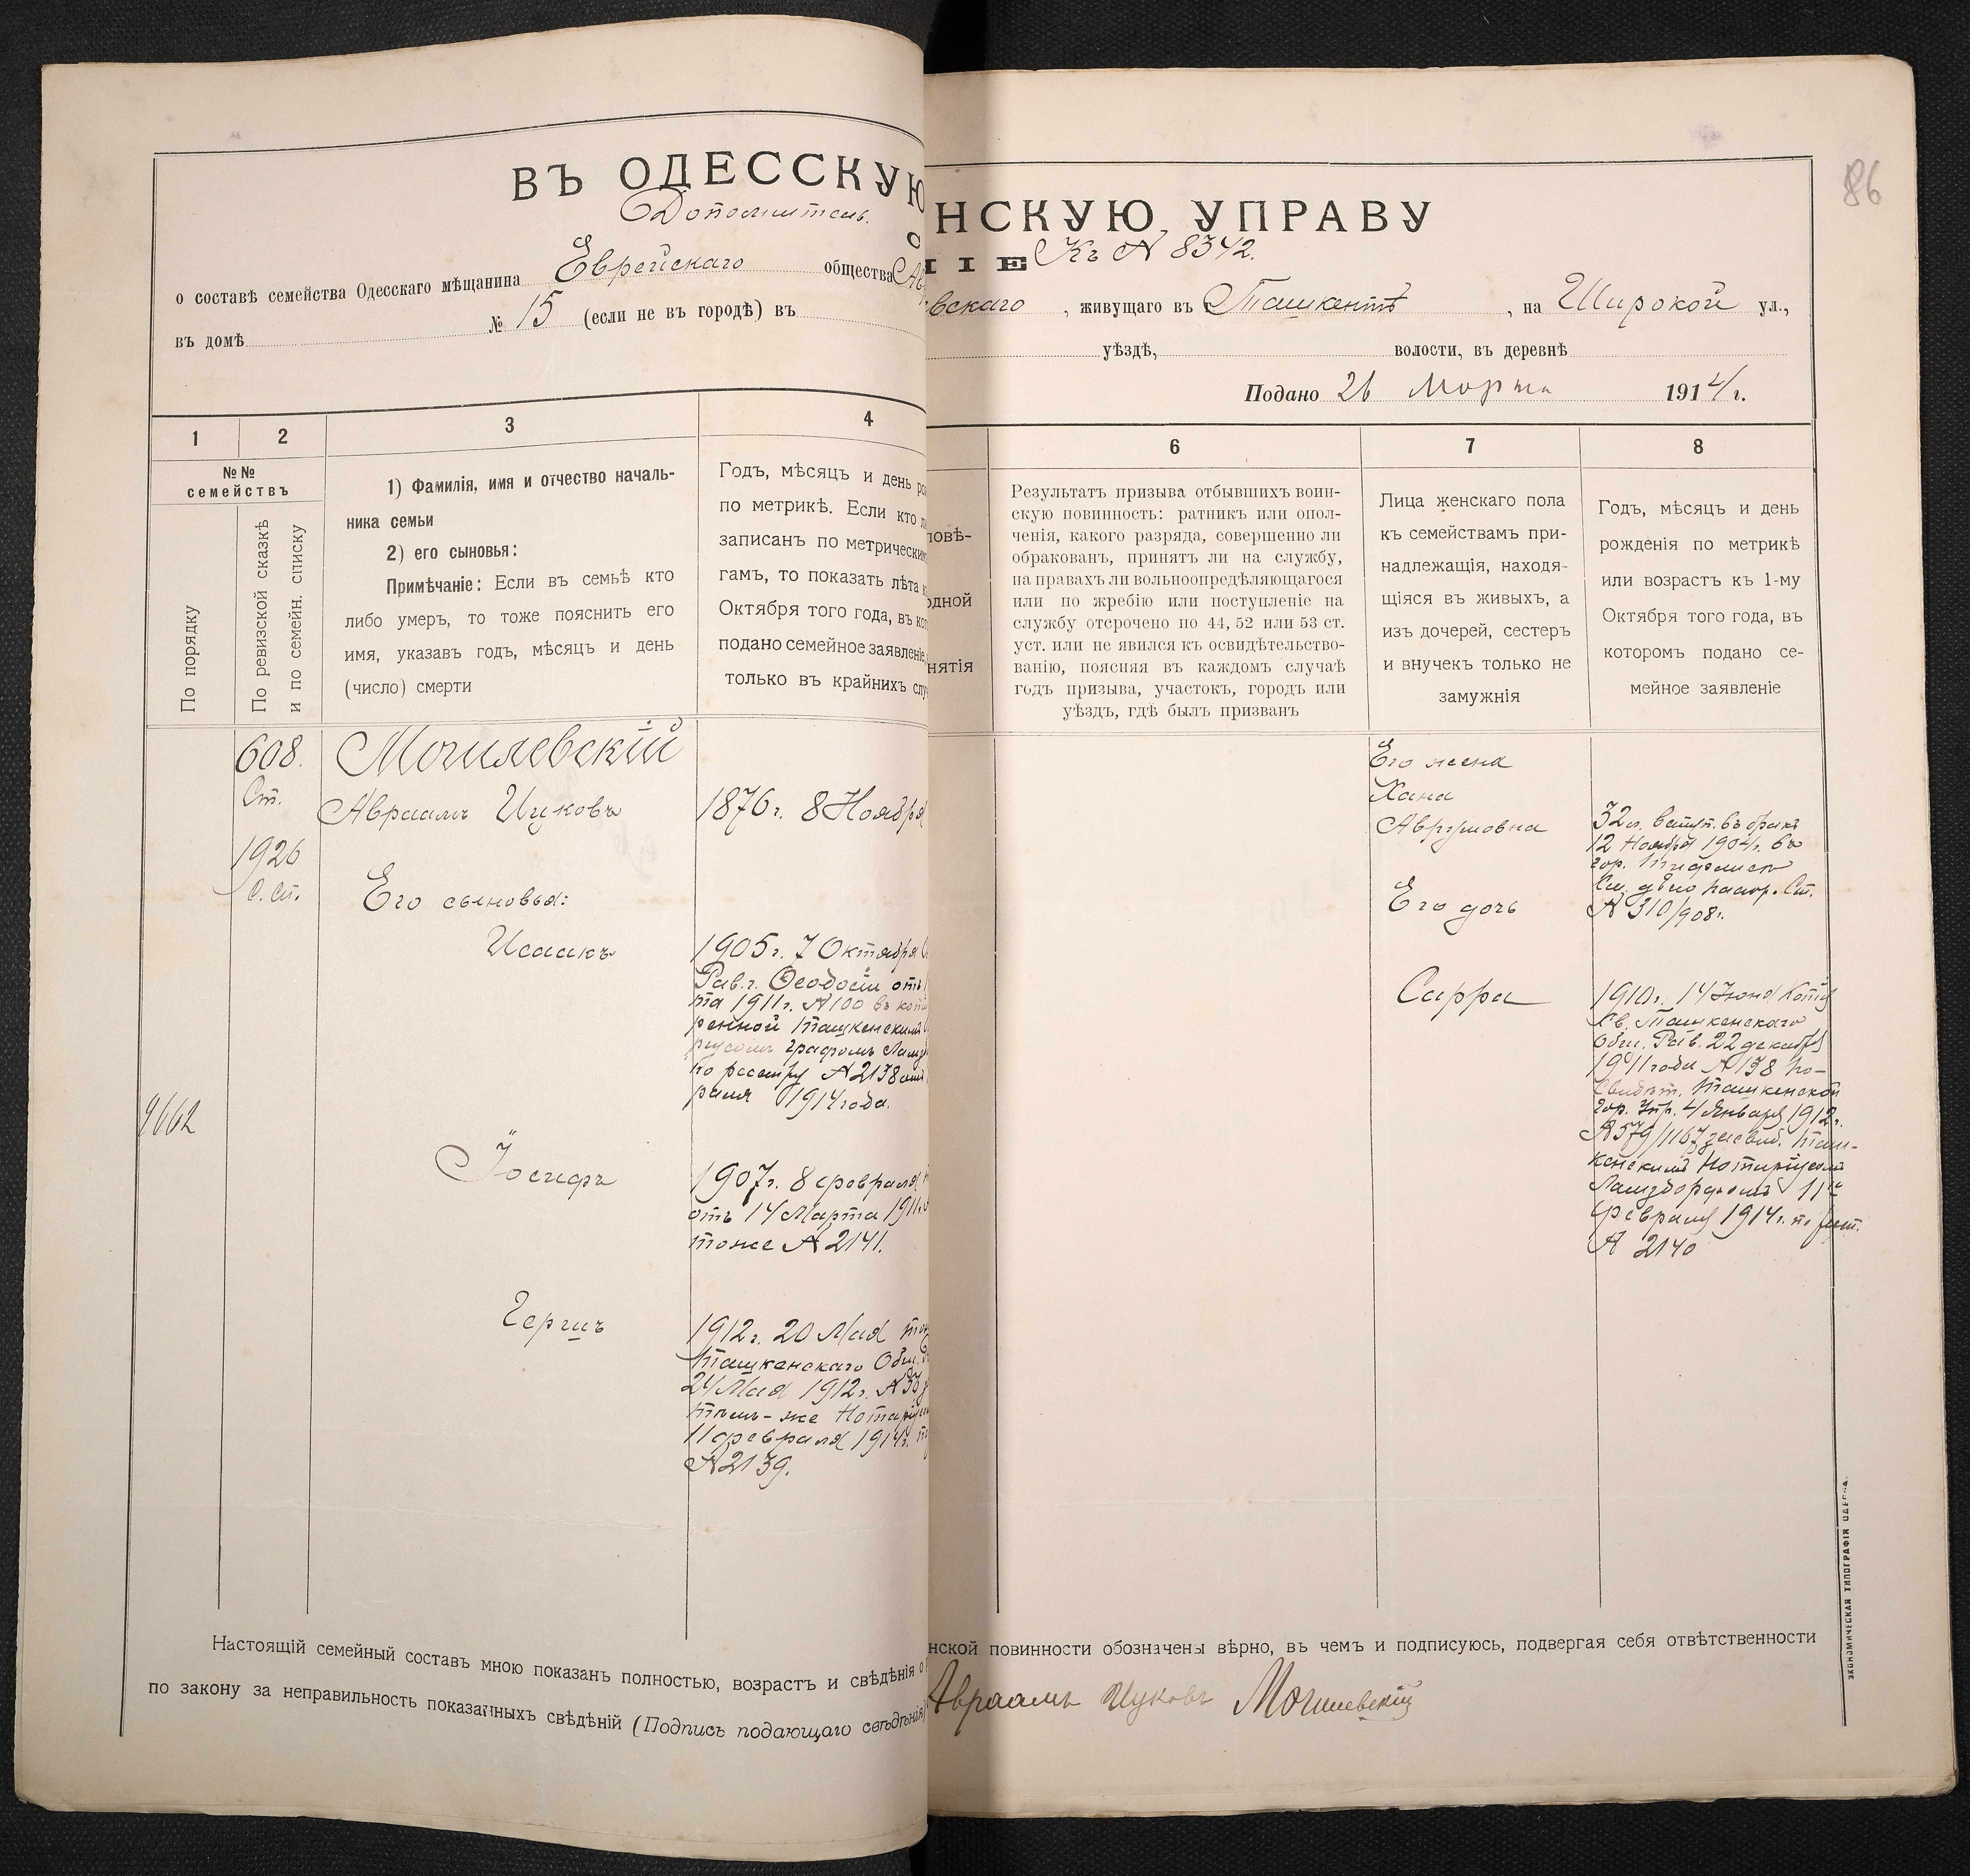 ВЪ ОДЕССКУЮ
Дополнитель.
О
о составѣ семейства Одесскаго мѣщанина Еврейскаго общества Ав
въ домѣ № 15 (если не въ городѣ) въ
1
2
3
4
№№
семействъ
По порядку
По ревизской сказкѣ
и по семейн. списку
1) Фамилія, имя и отчество началь-
ника семьи
2) его сыновья:
Примѣчаніе: Если въ семьѣ кто
либо умеръ, то тоже пояснить его
имя, указавъ годъ, мѣсяцъ и день
(число) смерти
Годъ, мѣсяцъ и день ро
по метрикѣ. Если кто
записанъ по метрическим
гамъ, то показать лѣта
Октября того года, въ ко
подано семейное заявленіе
только въ крайнихъ слу
608.
Ст.
1926
С. сп.
9662
Могилевскій
Авраамъ Ицковъ
1876г. 8 Ноября
Его сыновья:
Исаакъ
1905г. 7 Октября
Рав. г. Ѳеодосіи отъ
та 1911г. № 100 въ копіи
ренной Ташкенскимъ
ріусомъ Графомъ
по реестру № 2138
раля 1914 года.
Іосифъ
1907г. 8 февраля
отъ 14 Марта 1911г.
тоже № 2141.
Гершъ
1912г. 20 Мая
Ташкенскаго Общ.
24 Мая 1912г. №
тѣмъ-же Нотаріусомъ
11 февраля 1914г. по
№ 2139.
Настоящій семейный составъ мною показанъ полностью, возрастъ и свѣдѣнія о
по закону за неправильность показанныхъ свѣдѣній (Подпись подающаго свѣдѣнія)
86
НСКУЮ УПРАВУ
ІЕ Къ № 8342.
вскаго, живущаго въ г. Ташкентѣ, на Широкой ул.,
уѣздѣ, волости, въ деревнѣ
Подано 26 Марта 1914 г.
6
7
8
повѣ-
одной
нятія
Результатъ призыва отбывшихъ воин-
скую повинность: ратникъ или опол-
ченія, какого разряда, совершенно ли
обракованъ, принятъ ли на службу,
на правахъ ли вольноопредѣляющагося
или по жребію или поступленіе на
службу отсрочено по 44, 52 или 53 ст.
уст. или не явился къ освидѣтельство-
ванію, поясняя въ каждомъ случаѣ
годъ призыва, участокъ, городъ или
уѣздъ, гдѣ былъ призванъ
Лица женскаго пола
къ семействамъ при-
надлежащія, находя-
щіяся въ живыхъ, а
изъ дочерей, сестеръ
и внучекъ только не
замужнія
Годъ, мѣсяцъ и день
рожденія по метрикѣ
или возрастъ къ 1-му
Октября того года, въ
которомъ подано се-
мейное заявленіе
Его жена
Хана
Аврумовна
32 л. вступ. въ бракъ
12 Ноября 1904г. въ
гор. Тифлисѣ
См. дѣло паспор. Ст.
№ 310/908г.
Его дочь
Сарра
1910г. 14 Іюня Копія
св. Ташкенскаго
Общ. Рав. 22 декабря
1911 года № 138 по
Свидѣт. Ташкенской
Гор. Упр. 4 Января 1912г.
№ 579/1167 засвид. Таш-
кенскимъ Нотаріусомъ
Ламздорфомъ 11го
февраля 1914г. по реест.
№ 2140
нской повинности обозначены вѣрно, въ чемъ и подписуюсь, подвергая себя отвѣтственности
Авраамъ Ицковъ Могилевскій
ЭКОНОМИЧЕСКАЯ ТИПОГРАФІЯ ОДЕССА.